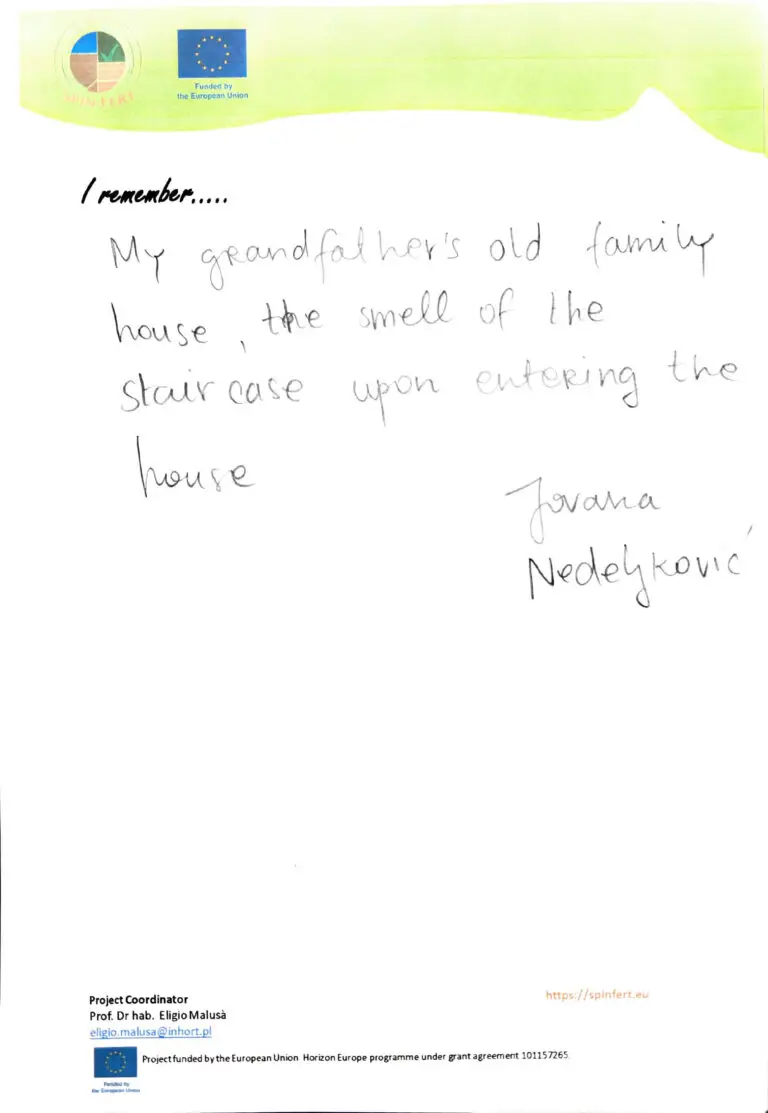 SPINFERT
Funded by
the European Union
I remember.....
My grandfather's old family
house, the smell of the
staircase upon entering the
house
Jovana
Nedeljković
Project Coordinator
https://spinfert.eu
Prof. Dr hab. Eligio Malusà
eligio.malusa@inhort.pl
Project funded by the European Union Horizon Europe programme under grant agreement 101157265
Funded by
the European Union